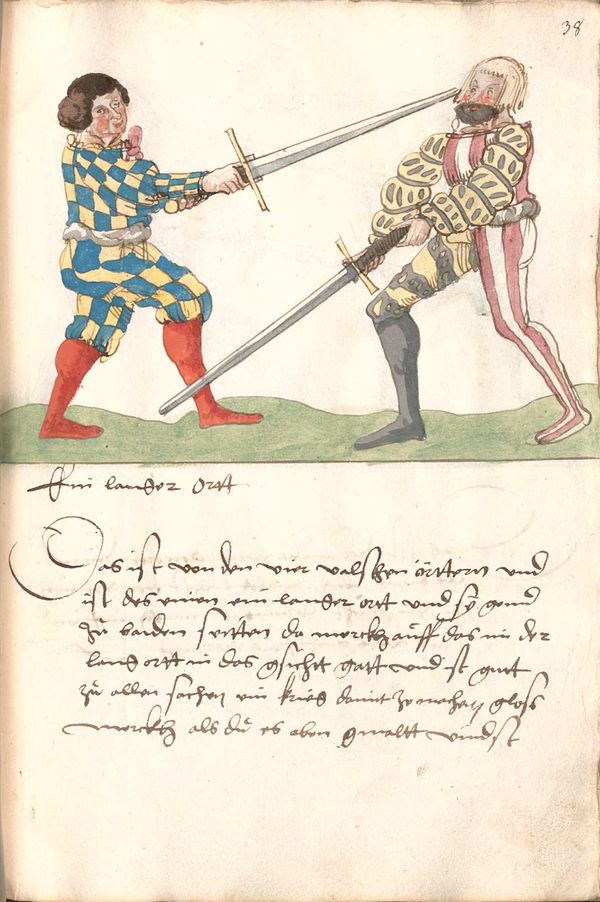 38
Ein langer Ortt
Das ist von den vier valschen örttern und
ist der ein langer ortt und sy gond
zů baiden seitten da merckh auff das in der
lang ortt in das gsicht gatt und ist guet
zů allen sachen ein krieg damit zů machen gloss
merckh als dů es oben gmaltt vindst